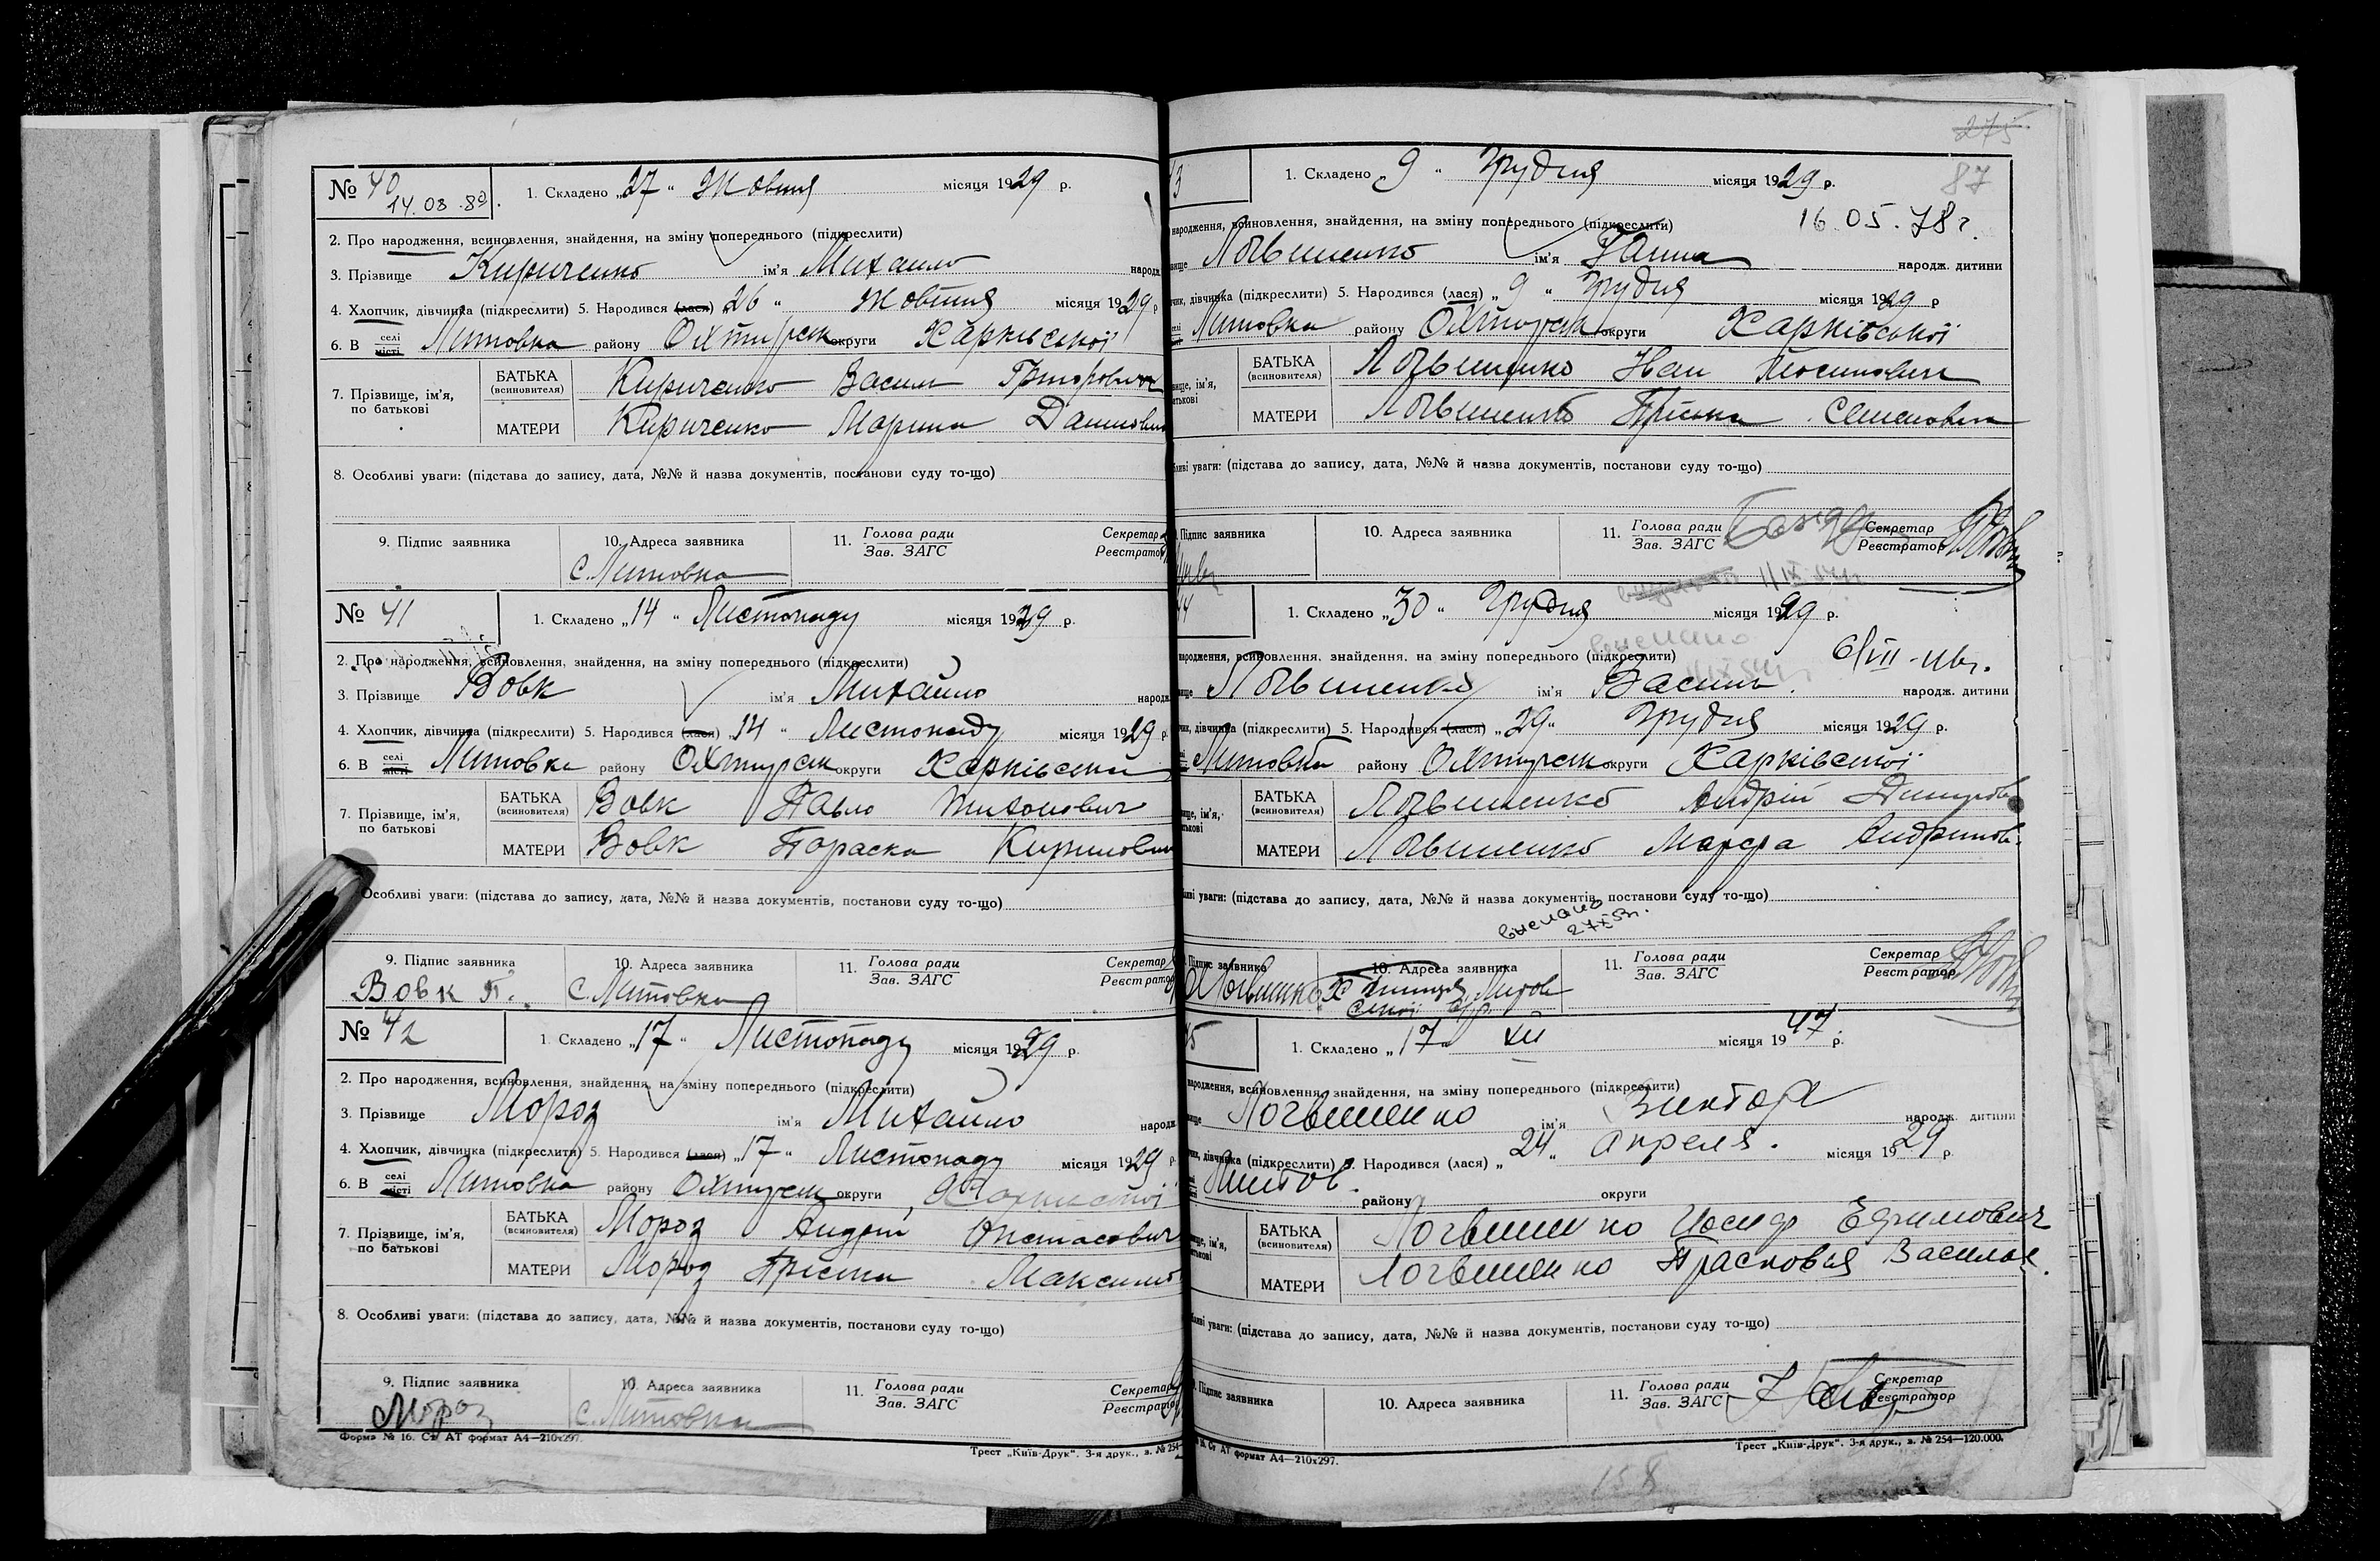 № 40 1. Складено „27" Жовтня місяця 1929 р.
14.08.89
2. Про народження, всиновлення, знайдення, на зміну попереднього (підкреслити)
3. Прізвище Кириченко ім'я Михайло народж.
4. Хлопчик, дівчинка (підкреслити) 5. Народився (лася) „26" жовтня місяця 1929 р
6. В селі місті Литовка району Охтирськ округи Харківської
7. Прізвище, ім'я, по батькові
БАТЬКА (всиновителя) Кириченко Васил Григорович
МАТЕРИ Кириченко Марина Данилови
8. Особливі уваги: (підстава до запису, дата, №№ й назва документів, постанови суду то-що)
9. Підпис заявника 10. Адреса заявника 11. Голова ради Зав. ЗАГС Секретар Реєстратор
с. Литовка
№ 41 1. Складено „14" Листопаду місяця 1929 р.
2. Про народження, всиновлення, знайдення, на зміну попереднього (підкреслити)
3. Прізвище Вовк ім'я Михайло народж.
4. Хлопчик, дівчинка (підкреслити) 5. Народився (лася) „14" Листопаду місяця 1929 р.
6. В селі місті Литовка району Охтирськ округи Харківської
7. Прізвище, ім'я, по батькові
БАТЬКА (всиновителя) Вовк Павло Тихонович
МАТЕРИ Вовк Параска Кирилови
Особливі уваги: (підстава до запису, дата, №№ й назва документів, постанови суду то-що)
9. Підпис заявника 10. Адреса заявника 11. Голова ради Зав. ЗАГС Секретар Реєстратор
Вовк П. с. Литовка
№ 42 1. Складено „17" Листопаду місяця 1929 р.
2. Про народження, всиновлення, знайдення, на зміну попереднього (підкреслити)
3. Прізвище Мороз ім'я Михайло народж.
4. Хлопчик, дівчинка (підкреслити) 5. Народився (лася) „17" Листопаду місяця 1929 р.
6. В селі місті Литовка району Охтирськ округи Харківської
7. Прізвище, ім'я, по батькові
БАТЬКА (всиновителя) Мороз Андрій Опанасович
МАТЕРИ Мороз Пріська Максимів
8. Особливі уваги: (підстава до запису, дата, №№ й назва документів, постанови суду то-що)
9. Підпис заявника 10. Адреса заявника 11. Голова ради Зав. ЗАГС Секретар Реєстратор
Мороз с. Литовка
Форма № 16. Ст АТ формат А4—210х297. Трест „Київ-Друк". 3-я друк., з. № 254—
275
87
3 1. Складено „9" Грудня місяця 1929 р.
16.05.78 г.
народження, всиновлення, знайдення, на зміну попереднього (підкреслити)
Логвиненко ім'я Ганна народж. дитини
дівчинка (підкреслити) 5. Народився (лася) „9" Грудня місяця 1929 р
Литовка району Охтирськ округи Харківської
БАТЬКА (всиновителя) Логвиненко Иван Йосипович
МАТЕРИ Логвиненко Пріська Семеновна
уваги: (підстава до запису, дата, №№ й назва документів, постанови суду то-що)
Підпис заявника 10. Адреса заявника 11. Голова ради Зав. ЗАГС Секретар Реєстратор
44 1. Складено „30" Грудня місяця 1929 р.
выслано
народження, всиновлення, знайдення, на зміну попереднього (підкреслити)
Логвиненко ім'я Василь народж. дитини
дівчинка (підкреслити) 5. Народився (лася) „29" Грудня місяця 1929 р.
Литовка району Охтирськ округи Харківської
БАТЬКА (всиновителя) Логвиненко Андрій Дмитрови
МАТЕРИ Логвиненко Марфа Андриїв.
уваги: (підстава до запису, дата, №№ й назва документів, постанови суду то-що)
выслано
Підпис заявника 10. Адреса заявника 11. Голова ради Зав. ЗАГС Секретар Реєстратор
45 1. Складено „17" XII місяця 1947 р.
народження, всиновлення, знайдення, на зміну попереднього (підкреслити)
Логвиненко ім'я Виктор народж. дитини
дівчинка (підкреслити) 5. Народився (лася) „24" апреля. місяця 1929 р.
Литов. району округи
БАТЬКА (всиновителя) Логвиненко Иосиф Ефимович
МАТЕРИ Логвиненко Прасковья Василье.
уваги: (підстава до запису, дата, №№ й назва документів, постанови суду то-що)
Підпис заявника 10. Адреса заявника 11. Голова ради Зав. ЗАГС Секретар Реєстратор
16. Ст АТ формат А4—210х297. Трест „Київ-Друк". 3-я друк., з. № 254—120.000.
158